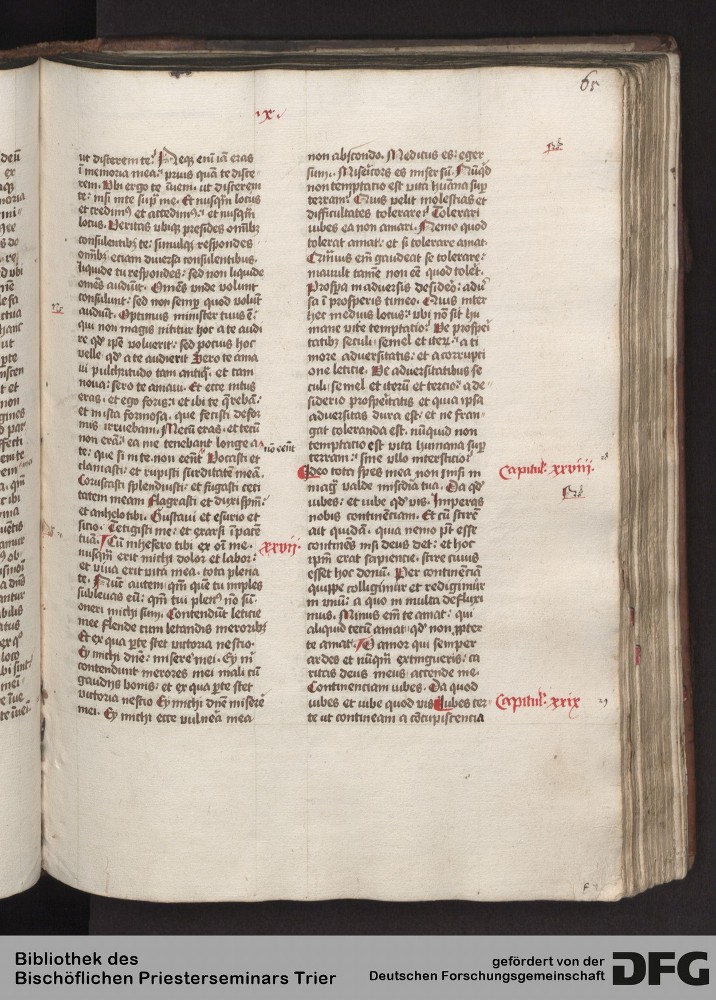 65
ix
ut discerem te? Neqз enim iā eras
ī memoria mea: prius quā te disce
rem. Vbi ergo te īveni. ut discerem
te: nisi in te sup me. Et nusqm̄ locus
et recedimꝰ et accedimꝰ: et nusqm̄
locus. Veritas ubiqз presides omībз
consulentibз te: simulqз respondes
omībз etiam diversa consulentibus.
Liquide tu respondes: sed non liquide
omēs audiūt. Omēs unde volunt
consulunt: sed non semp quod volūt
audiūt. Optimus minister tuus ē:
qui non magis intuetur hoc a te audi
re qd' ipse voluerit: sed potius hoc
velle qd' a te audierit Sero te ama
vi pulchritudo tam antiq. et tam
nova: sero te amavi. Et ecce intus
eras. et ego foris: et ibi te q̄rebā:
et in ista formosa. que fecisti defor
mis irruebam. Mecū eras. et tecū
non erā: ea me tenebant longe a
te: que si in te non eēnt Vocasti et
non eēnt
clamasti: et rupisti surditatē meā.
Coruscasti splenduisti: et fugasti ceci
tatem meam Flagrasti et duxi spm̄:
et anhelo tibi. Gustavi et esurio et
sitio. Tetigisti me: et exarsi ī pacē
tuā. Cū inhesero tibi ex oī me.
xxvij.
nusqm̄ erit michi dolor et labor:
et viva erit vita mea. tota plena
te. Nūc autem qm̄ quē tu imples
sublevas eū: qm̄ tui plenꝰ nō sū.
oneri michi sum. Contendūt leticie
mee flende cum letandis meroribз
Et ex qua pte stet victoria nescio.
Ey michi dne: miserē mei. Ey m̄
contendunt merores mei mali cū
gaudijs bonis: et ex qua pte stet
victoria nescio Ey michi dne miserē
mei. Ey michi ecce vulnera mea
non abscondo. Medicus es: eger
sum. Misericors es miser sū. Nūqd
non temptatio est vita hūana sup
terram? Quis velit molestias et
difficultates tolerare? Tolerari
iubes ea non amari. Nemo quod
tolerat amat. et si tolerare amat.
Quāvis em̄ gaudeat se tolerare:
mavult tamē non eē quod tolet.
Prospa in adversis desidero: advs
sa ī prosperis timeo. Quis inter
hec medius locus: ubi nō sit hu
mane vite temptatio? Ve prospei
tatibз seculi. semel et iterꝫ. a ti
more adversitatis: et a corrupti
one leticie. Ve adversitatibus se
culi. semel et iterū et tercio: a de
siderio prospeitatis et quia ipsa
adversitas dura est: et ne fran
gat tolerandā est. nūquid non
temptatio est vita humana sup
terram: sine ullo intersticio?
Ideo tota spes mea non nisi in
Capitul. xxviii.
mag valde miscd'ia tua. Da qd'
iubes: et iube qd' vis. Imperas
nobis continēciam. Et cū scirē
ait quidā. quia nemo pt esse
continēs nisi deus det: et hoc
ipm̄ erat sapiencie. scire cuius
esset hoc donū. Per continēciā
quippe colligimur et redigimur
in unū: a quo in multa defluxi
mus. Minus em̄ te amat: qui
aliquid tecū amat. qd' non ppter
te amat. O amor qui semper
ardes et nūqm̄ extingueris: ca
ritas deus meus: accende me.
Continenciam iubes. Da quod
iubes et iube quod vis Iubes cer-
Capitul. xxix
29
te ut contineam a cōcupiscencia
Bibliothek des
Bischöflichen Priesterseminars Trier
gefördert von der
Deutschen Forschungsgemeinschaft
DFG